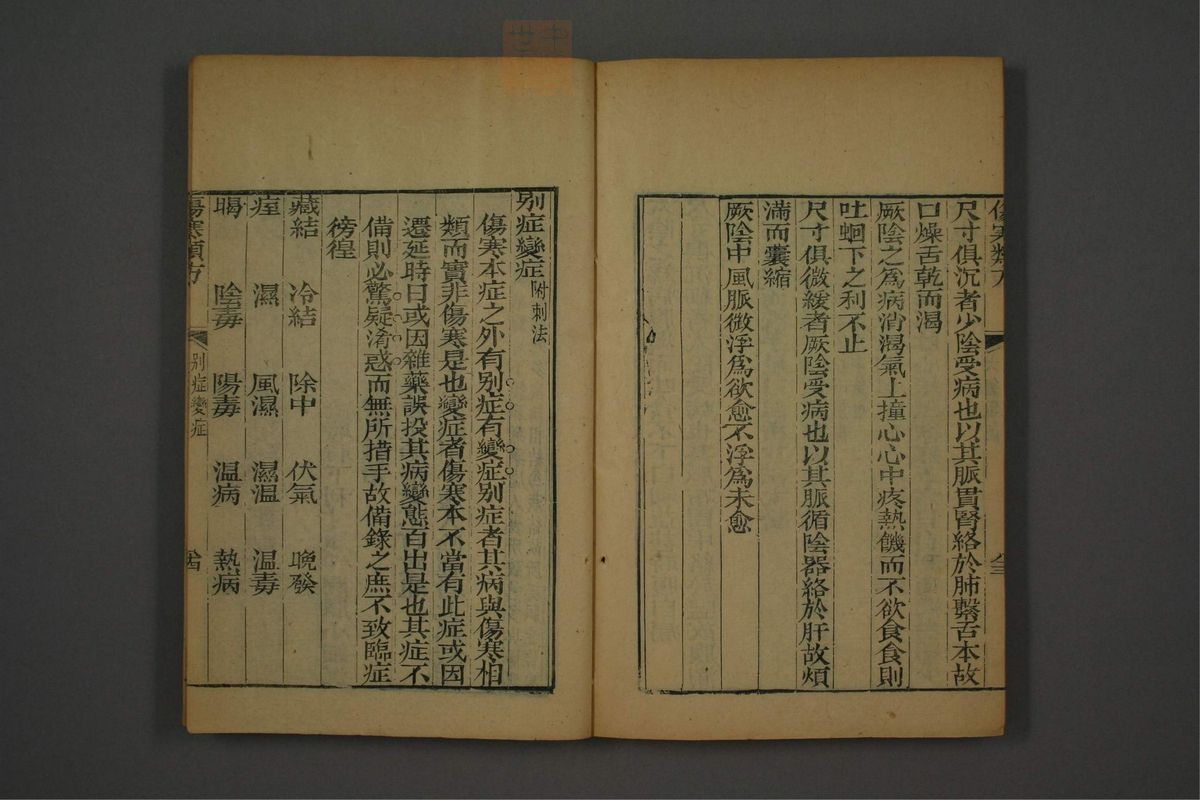 傷寒類方
尺寸俱沉者少陰受病也以其脈貫腎絡於肺繫舌本故
口燥舌乾而渴
厥陰之為病消渴氣上撞心心中疼熱饑而不欲食食則
吐蛔下之利不止
尺寸俱微緩者厥陰受病也以其脈循陰器絡於肝故煩
滿而囊縮
厥陰中風脈微浮為欲愈不浮為未愈
別症變症附刺法
傷寒本症之外有別症有變症別症者其病與傷寒相
類而實非傷寒是也變症者傷寒本不當有此症或因
遷延時日或因雜藥誤投其病變態百出是也其症不
備則必驚疑淆惑而無所措手故備錄之庶不致臨症
徬徨
藏結 冷結 除中 伏氣 晚發
痙 濕 風濕 濕溫 溫毒
暍 陰毒 陽毒 温病 熱病
傷寒類方 別症變症